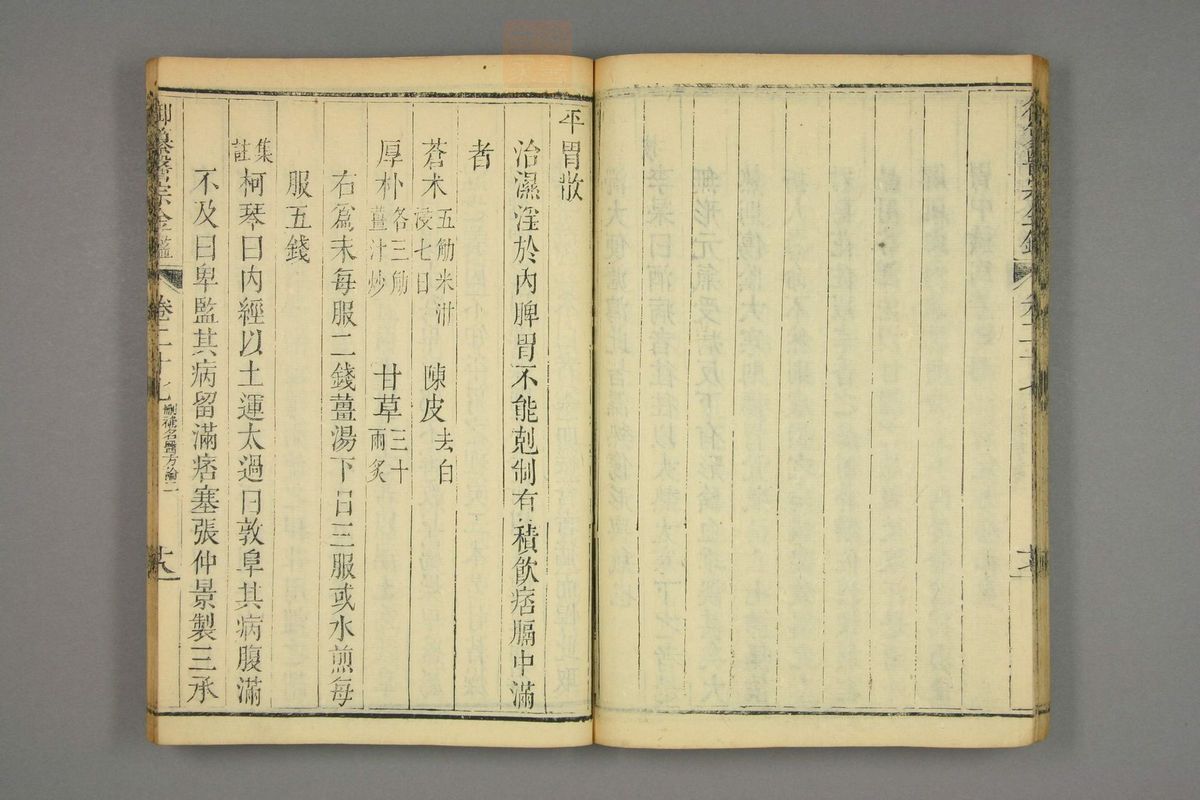 平胃散
治濕淫於內脾胃不能剋制有積飲痞膈中滿
者
蒼朮五觔米泔浸七日 陳皮去白
厚朴各三觔薑汁炒 甘草三十兩炙
右爲末每服二錢薑湯下日三服或水煎每
服五錢
集註柯琴曰內經以土運太過曰敦阜其病腹滿
不及曰卑監其病留滿痞塞張仲景製三承
御纂醫宗金鑑 卷二十七 刪補名醫方論二